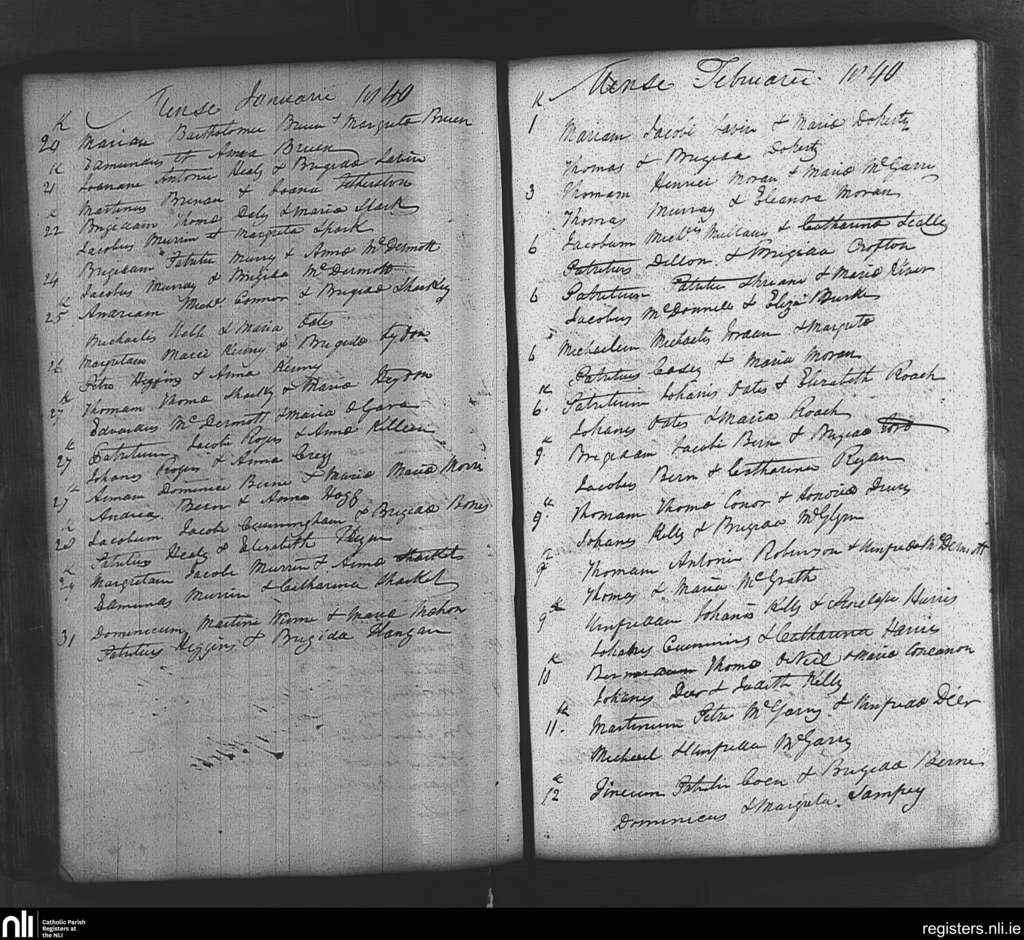 Mense Januarii 1840
K
20 Mariam Bartholomei Bruen & Margreta Bruen
Edmundus et Anna Bruen
K
21 Joanam Antonii Healy & Brigida Lavin
Martinus Brenan & Joana Fetherston
K
22 Brigidam Thoma Daly & Maria Spark
Jacobus Murrin & Margreta Spark
24 Brigidam Patritii Murry & Anna McDermott
Jacobus Murray & Brigida McDermott
K
25 Mich. Connor & Brigida Sharkey
Michaelis & Maria Oates
26 Margretam Maria Kenny & Brigida Lydon
Petri Higgins & Anna Kenny
K
27 Thomam Thoma Skelly & Maria
Edwardus McDermott & Maria OGara
K
27 Patritium Jacobi Rogers & Anna Killeen
Johanes Rogers & Anna Grey
K
27 Annam Dominici Berne & Maria Maria Morris
Andrea Bern & Anna
K
28 Jacobum Jacobi Cunningham & Brigida
Patritius Healy & Elizabeth
K
29 Margretam Jacobi Murrin & Anna
Edmundus Murrin & Catharina
31 Dominicum Martini & Maria Mahon
Patritius Higgins & Brigida Hangan
Mense Februarii 1840
K
1 Mariam Jacobi Lavin & Maria Doherty
Thomas & Brigida Doherty
3 Thomam Henrici Moran & Maria McGarry
Thomas Murray & Eleanora Moran
6 Jacobum Mich. Mullany & Catharina Scally
Patritius Dillon & Brigida Crofton
6 Patritium Patritii & Maria
Jacobus McDonnell & Eliza Burke
6 Michaelem Michaelis & Margreta
Patritius Casey & Maria Moran
K
6. Patritium Johanis Oates & Elizabeth Roach
Johanes Oates & Maria Roach
K
9 Brigidam Jacobi Bern & Brigida
Jacobus Bern & Catharina Regan
K
9. Thomam Thoma Conor & Honoria Drury
Johanes Kelly & Brigida McGlynn
Thomam Antonii Robinson & Unfreda McDermott
Thomas & Maria McGrath
K
9 Unfredam Johanis Kelly & Penelope Harris
Johanes Cummins & Catharina Harris
K
10 Bernardum Thoma ONeil & Maria Concanon
Johanes & Judith Kelly
K
11. Martinum Petri McGarry & Unfreda
Michael & Unfreda McGarry
K
12 Patritii Coen & Brigida Berne
Dominicus & Margreta Tampey
nli
Catholic Parish
Registers at
the NLI
registers.nli.ie